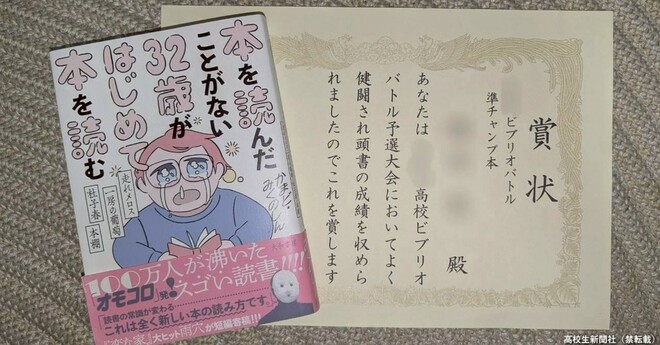 本を読んだ
ことがない
32歳が
はじめて
本を読む
かまど、みくのしん
走れメロス
一房の葡萄
杜子春
本棚
100万人が沸いた
オモコロ発!
スゴい読書!!!!
「読書の常識が変わる
これは全く新しい本の読み方です。」
大ヒット雨穴が短篇寄稿!!
賞状
ビブリオバトル
準チャンプ本
殿
あなたは
高校ビブリオ
バトル予選大会においてよく
健闘され頭書の成績を収めら
れましたのでこれを賞します
高校生新聞社(禁転載)